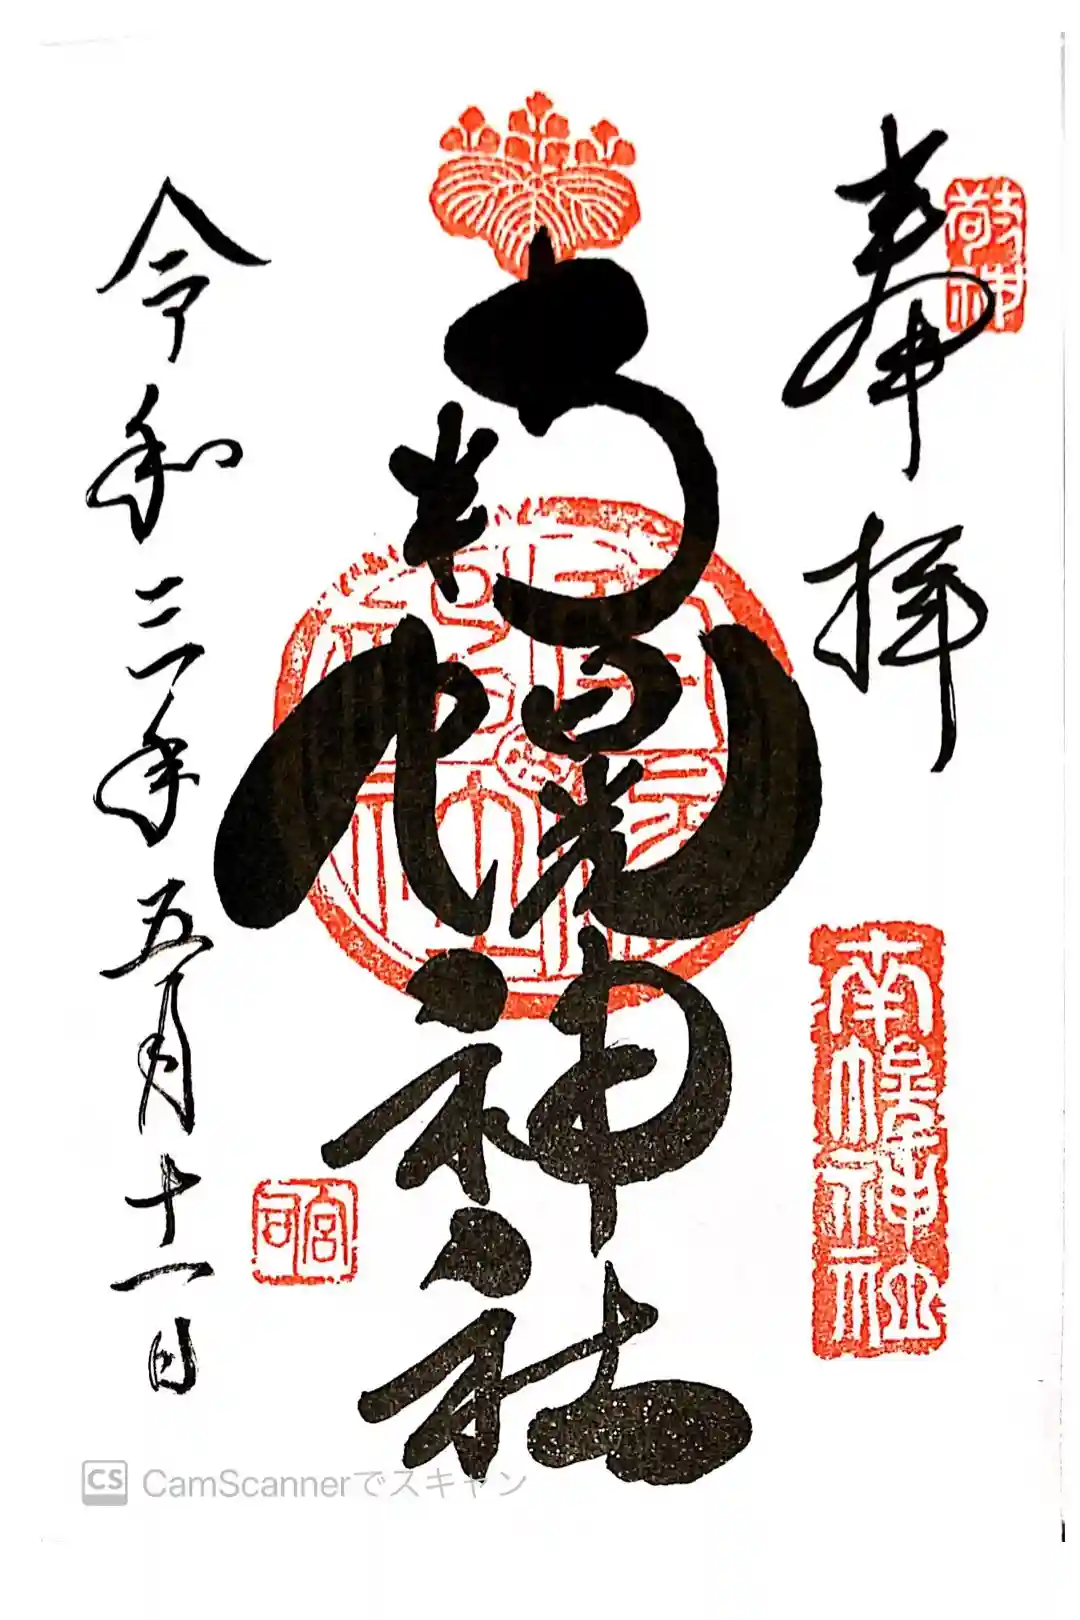 敬神
奉拝
南幌神社
南幌神社
宮司
令和三年五月十一日
CS CamScannerでスキャン